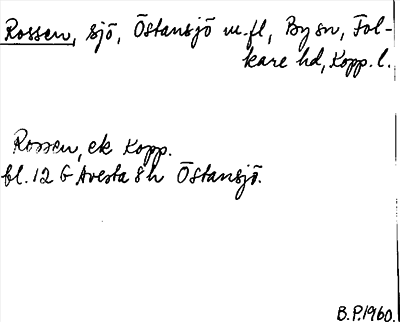 Rossen, sjö, Östansjö m.fl, By sn, Fol-
kare hd, Kopp. l.
Rossen, ek Kopp.
bl. 12 G Avesta 8 h Östansjö.
B.P. 1960.